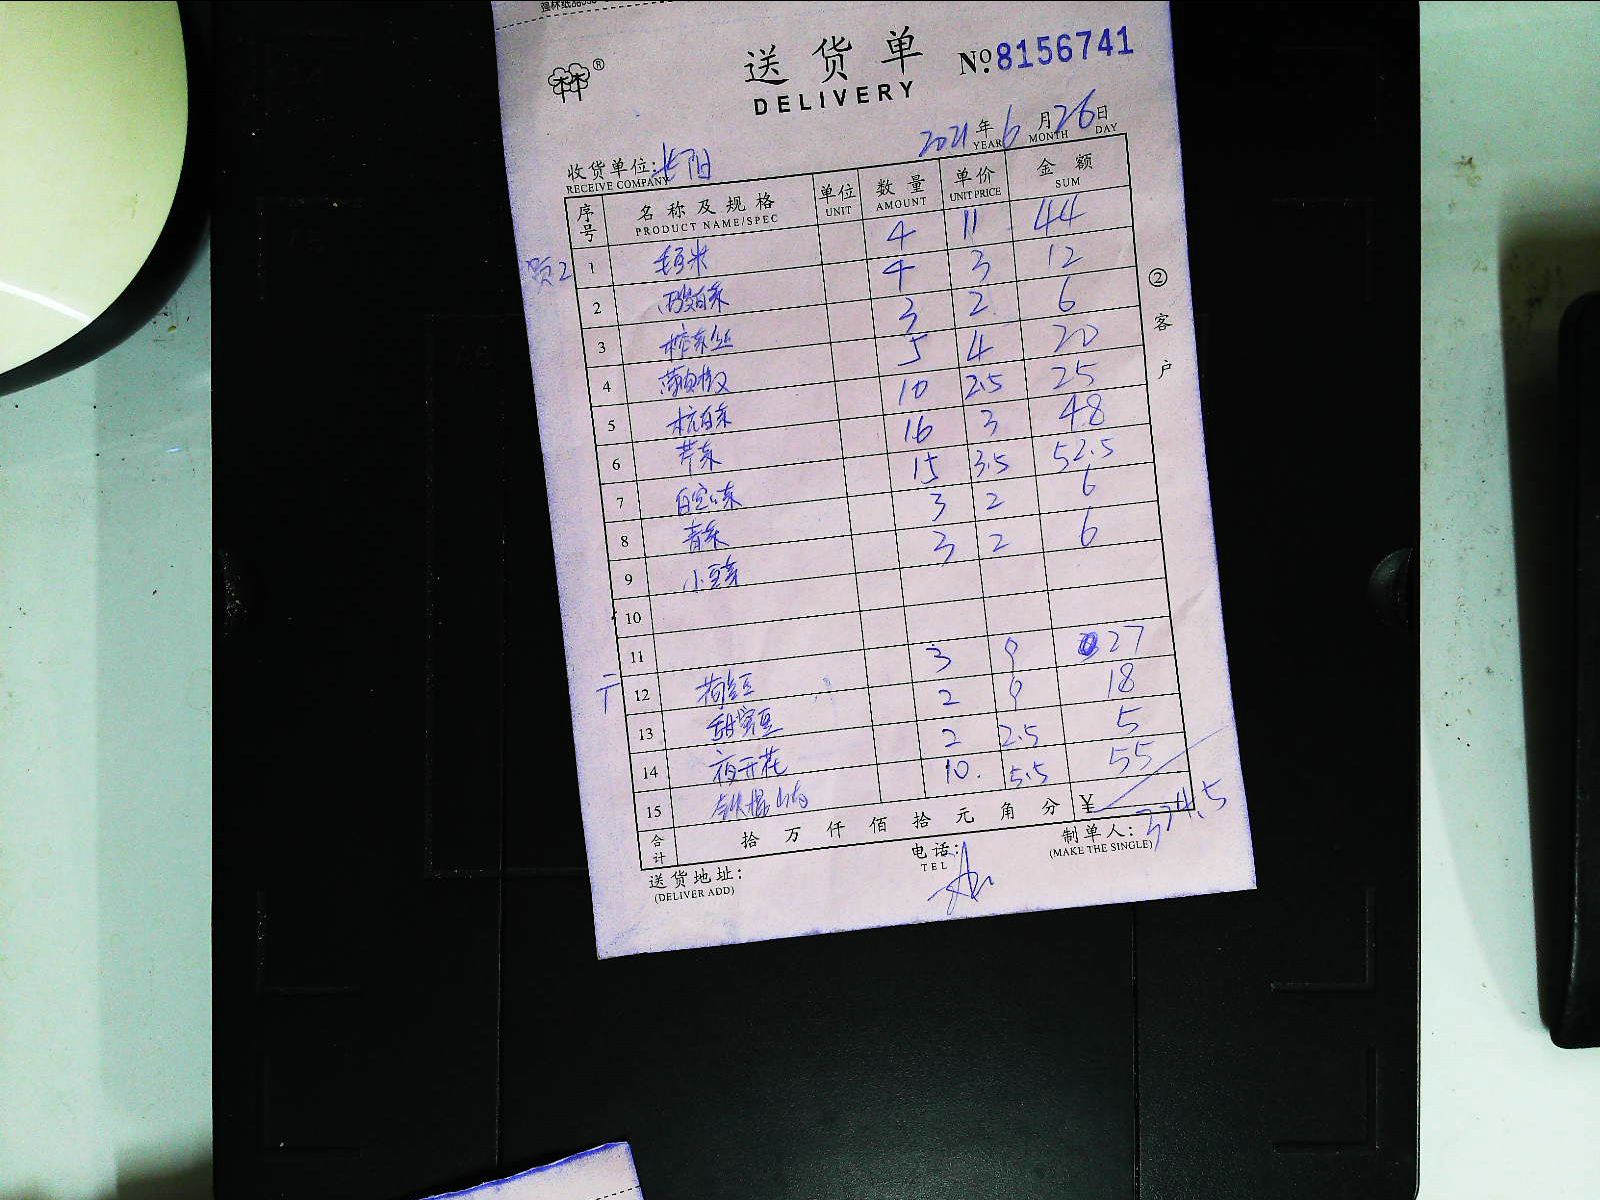 送货单 №8156741
DELIVERY
2021年6月26日
YEAR MONTH DAY
收货单位:长阳
RECEIVE COMPANY
序号 名称及规格 单位 数量 单价 金额
PRODUCT NAME/SPEC UNIT AMOUNT UNIT PRICE SUM
1 4 11 44
2 酸白菜 4 3 12
3 榨菜丝 3 2 6
4 5 4 20
5 杭白菜 10 2.5 25
6 芹菜 16 3 48
7 15 3.5 52.5
8 青菜 3 2 6
9 小豆芽 3 2 6
10
11
12 荷兰豆 3 9 27
13 甜蜜豆 2 9 18
14 夜开花 2 2.5 5
15 铁棍山药 10. 5.5 55
合计 拾万仟佰拾元角分 ¥ 324.5
送货地址: 电话: 制单人:
(DELIVER ADD) TEL (MAKE THE SINGLE)
②客户